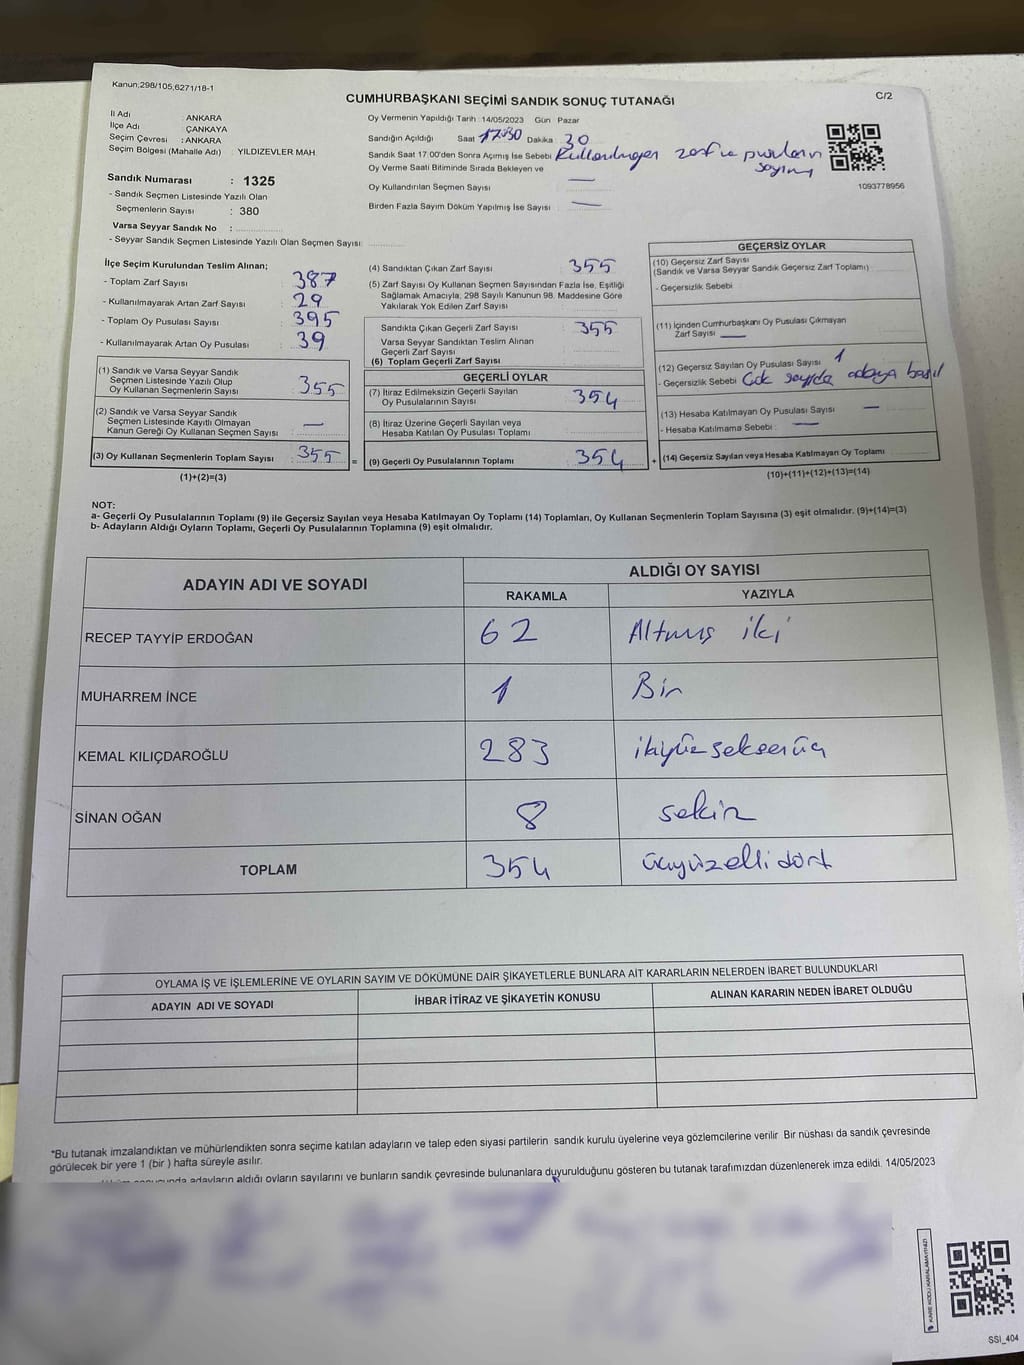 Kanun:298/105,6271/18-1
C/2
CUMHURBAŞKANI SEÇİMİ SANDIK SONUÇ TUTANAĞI
İl Adı : ANKARA
İlçe Adı : ÇANKAYA
Seçim Çevresi : ANKARA
Seçim Bölgesi (Mahalle Adı) YILDIZEVLER MAH.
Sandık Numarası : 1325
- Sandık Seçmen Listesinde Yazılı Olan
Seçmenlerin Sayısı : 380
Varsa Seyyar Sandık No :
- Seyyar Sandık Seçmen Listesinde Yazılı Olan Seçmen Sayısı:
Oy Vermenin Yapıldığı Tarih :14/05/2023 Gün Pazar
Sandığın Açıldığı Saat Dakika 30
Sandık Saat 17:00'den Sonra Açımış İse Sebebi Kullanılmayan zarf ve pusulanın sayımı
Oy Verme Saati Bitiminde Sırada Bekleyen ve
Oy Kullandırılan Seçmen Sayısı —
Birden Fazla Sayım Döküm Yapılmış İse Sayısı —
1093778956
İlçe Seçim Kurulundan Teslim Alınan;
- Toplam Zarf Sayısı : 387
- Kullanılmayarak Artan Zarf Sayısı : 29
- Toplam Oy Pusulası Sayısı : 395
- Kullanılmayarak Artan Oy Pusulası : 39
(1) Sandık ve Varsa Seyyar Sandık
Seçmen Listesinde Yazılı Olup
Oy Kullanan Seçmenlerin Sayısı : 355
(2) Sandık ve Varsa Seyyar Sandık
Seçmen Listesinde Kayıtlı Olmayan
Kanun Gereği Oy Kullanan Seçmen Sayısı : —
(3) Oy Kullanan Seçmenlerin Toplam Sayısı : 355 =
(1)+(2)=(3)
(4) Sandıktan Çıkan Zarf Sayısı 355
(5) Zarf Sayısı Oy Kullanan Seçmen Sayısından Fazla İse, Eşitliği
Sağlamak Amacıyla, 298 Sayılı Kanunun 98. Maddesine Göre
Yakılarak Yok Edilen Zarf Sayısı
Sandıkta Çıkan Geçerli Zarf Sayısı 355
Varsa Seyyar Sandıktan Teslim Alınan
Geçerli Zarf Sayısı
(6) Toplam Geçerli Zarf Sayısı
GEÇERLİ OYLAR
(7) İtiraz Edilmeksizin Geçerli Sayılan
Oy Pusulalarının Sayısı 354
(8) İtiraz Üzerine Geçerli Sayılan veya
Hesaba Katılan Oy Pusulası Toplamı
(9) Geçerli Oy Pusulalarının Toplamı 354 +
GEÇERSİZ OYLAR
(10) Geçersiz Zarf Sayısı
(Sandık ve Varsa Seyyar Sandık Geçersiz Zarf Toplamı)
- Geçersizlik Sebebi
(11) İçinden Cumhurbaşkanı Oy Pusulası Çıkmayan
Zarf Sayısı —
(12) Geçersiz Sayılan Oy Pusulası Sayısı 1
- Geçersizlik Sebebi Çok sayıda adaya basıl
(13) Hesaba Katılmayan Oy Pusulası Sayısı —
- Hesaba Katılmama Sebebi : —
(14) Geçersiz Sayılan veya Hesaba Katılmayan Oy Toplamı
(10)+(11)+(12)+(13)=(14)
NOT:
a- Geçerli Oy Pusulalarının Toplamı (9) ile Geçersiz Sayılan veya Hesaba Katılmayan Oy Toplamı (14) Toplamları, Oy Kullanan Seçmenlerin Toplam Sayısına (3) eşit olmalıdır. (9)+(14)=(3)
b- Adayların Aldığı Oyların Toplamı, Geçerli Oy Pusulalarının Toplamına (9) eşit olmalıdır.
ADAYIN ADI VE SOYADI
ALDIĞI OY SAYISI
RAKAMLA YAZIYLA
RECEP TAYYİP ERDOĞAN 62 Altmış iki
MUHARREM İNCE 1 Bir
KEMAL KILIÇDAROĞLU 283 ikiyüzseksenüç
SİNAN OĞAN 8 sekiz
TOPLAM 354 üçyüzellidört
OYLAMA İŞ VE İŞLEMLERİNE VE OYLARIN SAYIM VE DÖKÜMÜNE DAİR ŞİKAYETLERLE BUNLARA AİT KARARLARIN NELERDEN İBARET BULUNDUKLARI
ADAYIN ADI VE SOYADI İHBAR İTİRAZ VE ŞİKAYETİN KONUSU ALINAN KARARIN NEDEN İBARET OLDUĞU
*Bu tutanak imzalandıktan ve mühürlendikten sonra seçime katılan adayların ve talep eden siyasi partilerin sandık kurulu üyelerine veya gözlemcilerine verilir Bir nüshası da sandık çevresinde
görülecek bir yere 1 (bir ) hafta süreyle asılır.
adayların aldığı oyların sayılarını ve bunların sandık çevresinde bulunanlara duyurulduğunu gösteren bu tutanak tarafımızdan düzenlenerek imza edildi. 14/05/2023
KARE KODU KARALAMAYINIZ!
SSI_404